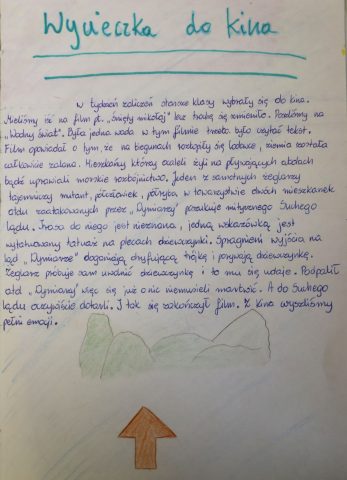 Wycieczka do kina
W tydzień zaliczeń starsze klasy wybrały się do kina.
Mieliśmy iść na film pt. „Święty mikołaj" lecz trochę się zmieniło. Poszliśmy na
„Wodny świat". Była jedna wada w tym filmie trzeba było czytać tekst.
Film opowiadał o tym, że na biegunach roztopiły się lodowce, ziemia została
całkowicie zalana. Mieszkańcy którzy ocaleli żyli na pływających atolach
bądź uprawiali morskie rozbójnictwo. Jeden z samotnych żeglarzy
tajemniczy mutant, półczłowiek, półryba w towarzystwie dwóch mieszkanek
atolu zaatakowanych przez „Dymiarzy" poszukuje mitycznego Suchego
Lądu. Trasa do niego jest nieznana, jedną wskazówką jest
wytatuowany tatuaż na plecach dziewczynki. Spragnieni wyjścia na
ląd „Dymiarze" doganiają dryfującą trójkę i porywają dziewczynkę.
Żeglarz próbuje sam uwolnić dziewczynkę i to mu się udaje. Podpalił
„Dymiarzy" więc się już o nic niemusieli martwić. A do Suchego
lądu oczywiście dotarli. I tak się zakończył film. Z kina wyszliśmy
pełni emocji.